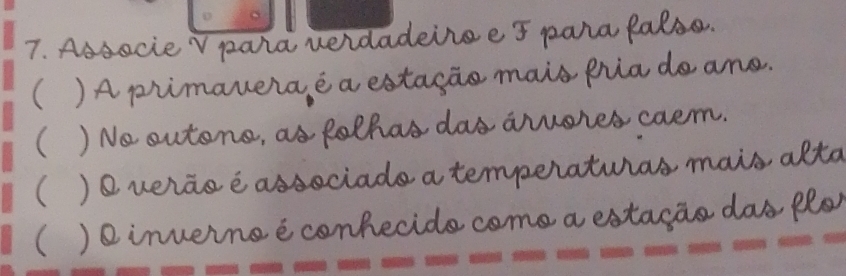 7. Associe V para verdadeiro e F para falso.
( ) A primavera, é a estação mais fria do ano.
( ) No outono, as folhas das árvores caem.
( ) O verão é associado a temperaturas mais alta
( ) O inverno é conhecido como a estação das flor